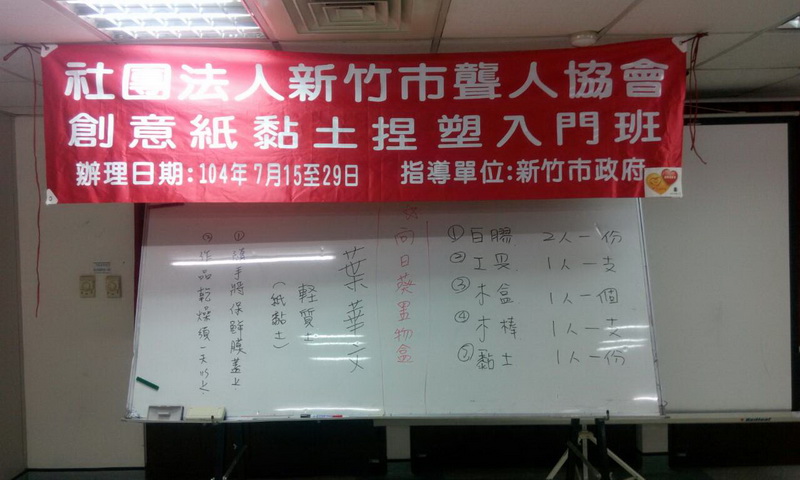 社團法人新竹市聾人協會
創意紙黏土捏塑入門班
辦理日期:104年7月15至29日 指導單位:新竹市政府
①白膠 2人一份
②工具 1人一支
③木盒 1人一個
④木棒 1人一支
⑤黏土 1人一份
向日葵置物盒
葉華文
軽質土
(紙黏土)
①隨手將保鮮膜蓋上
②作品乾燥須一天以上